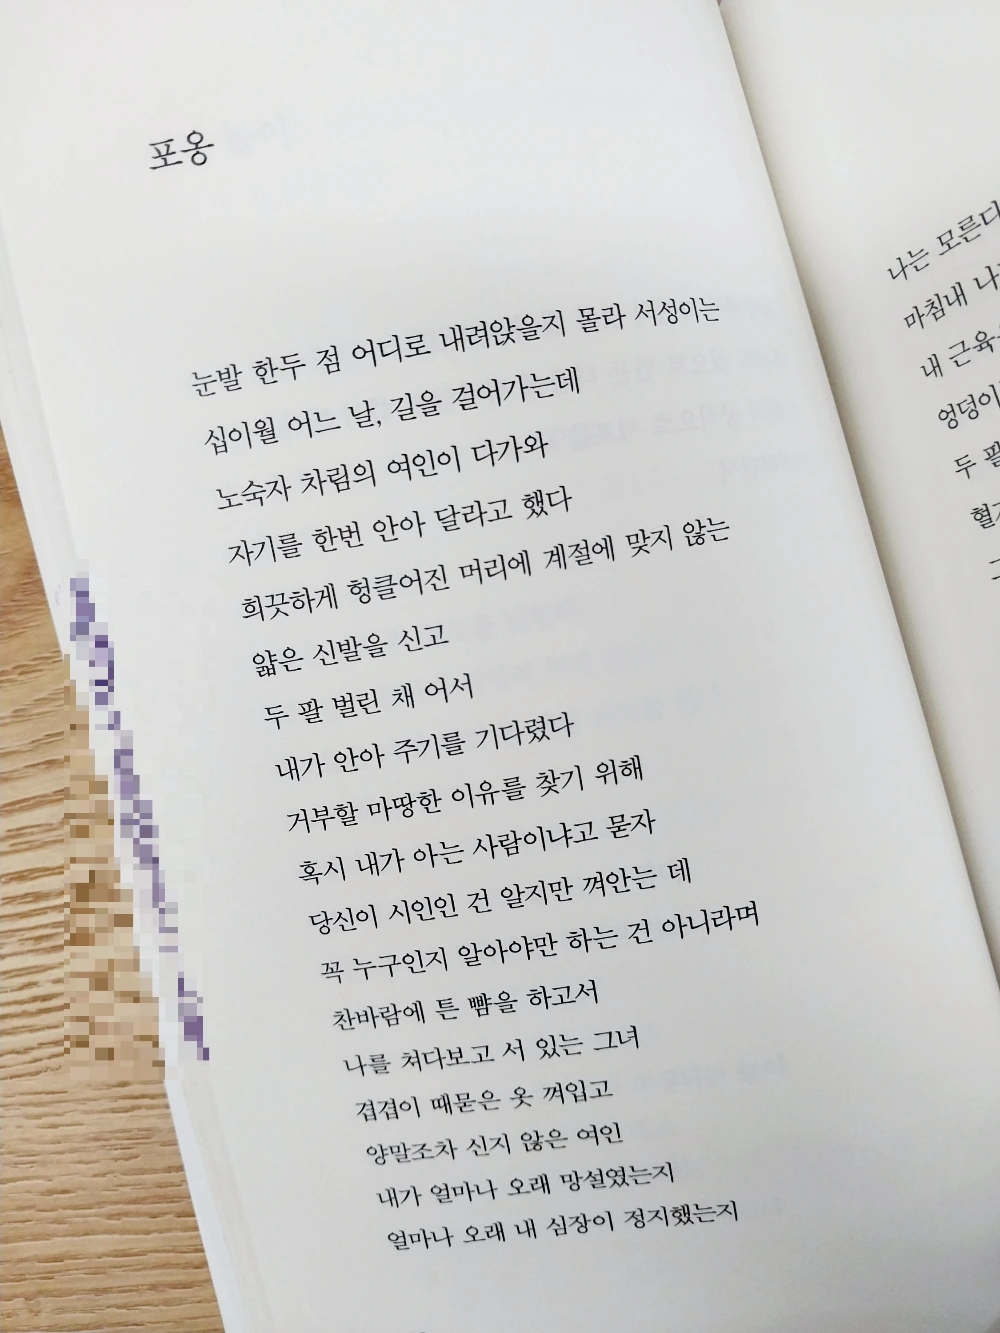 포옹
눈발 한두 점 어디로 내려앉을지 몰라 서성이는
십이월 어느 날, 길을 걸어가는데
노숙자 차림의 여인이 다가와
자기를 한번 안아 달라고 했다
희끗하게 헝클어진 머리에 계절에 맞지 않는
얇은 신발을 신고
두 팔 벌린 채 어서
내가 안아 주기를 기다렸다
거부할 마땅한 이유를 찾기 위해
혹시 내가 아는 사람이냐고 묻자
당신이 시인인 건 알지만 껴안는 데
꼭 누구인지 알아야만 하는 건 아니라며
찬바람에 튼 뺨을 하고서
나를 쳐다보고 서 있는 그녀
겹겹이 때묻은 옷 껴입고
양말조차 신지 않은 여인
내가 얼마나 오래 망설였는지
얼마나 오래 내 심장이 정지했는지
나는 모른다
마침내
내 근육
엉덩이
두 팔